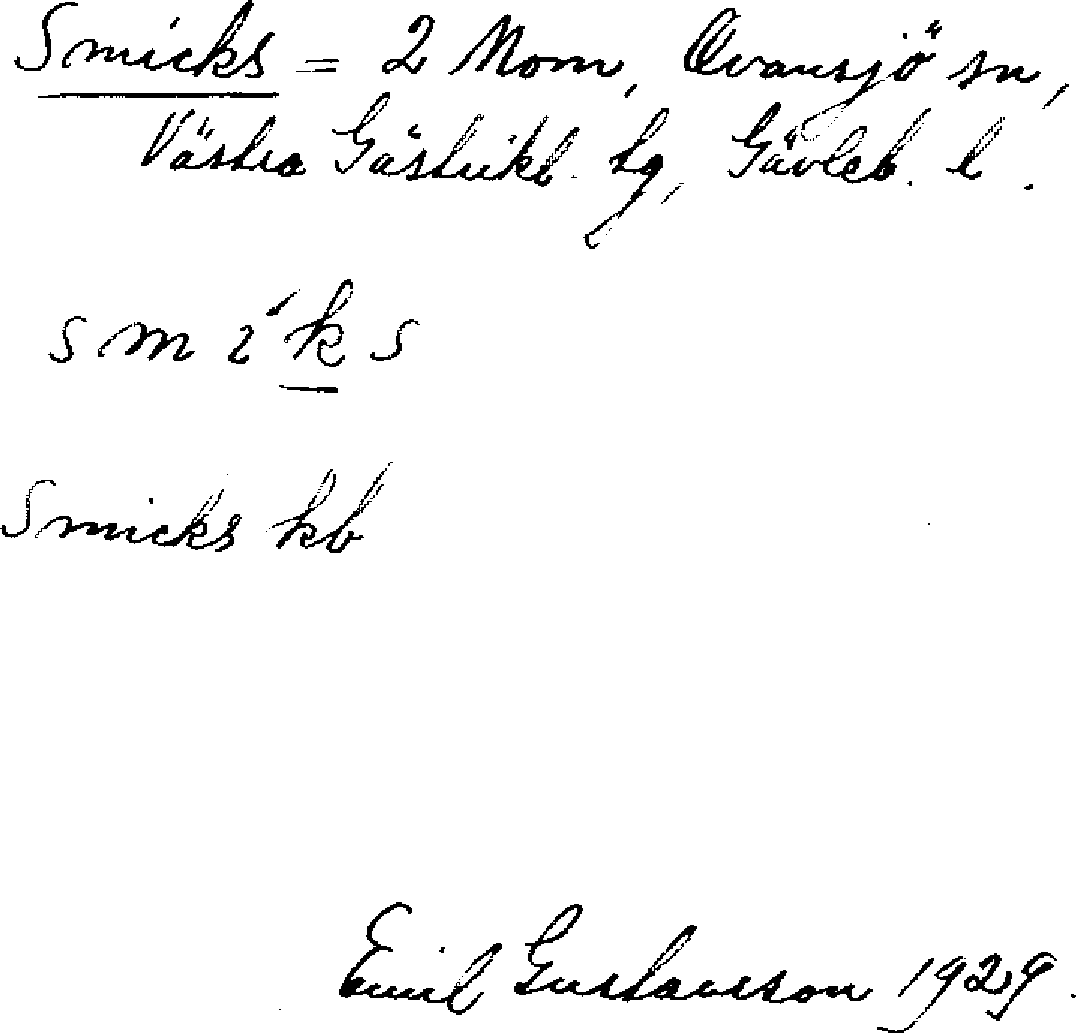 Smicks = 2 Mom, Ovansjö sn,
Västra Gästrikl. tg, Gävleb. l.
smi´ks
Smicks kb
Emil Gustavsson 1929.